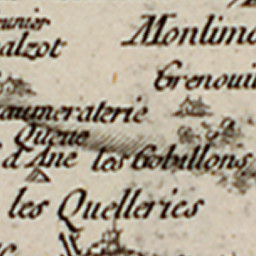 eunier
alzot
Monlime
Grenouil
aumeraterie
Queue
d'Ane
les Gobillons
les Quelleries